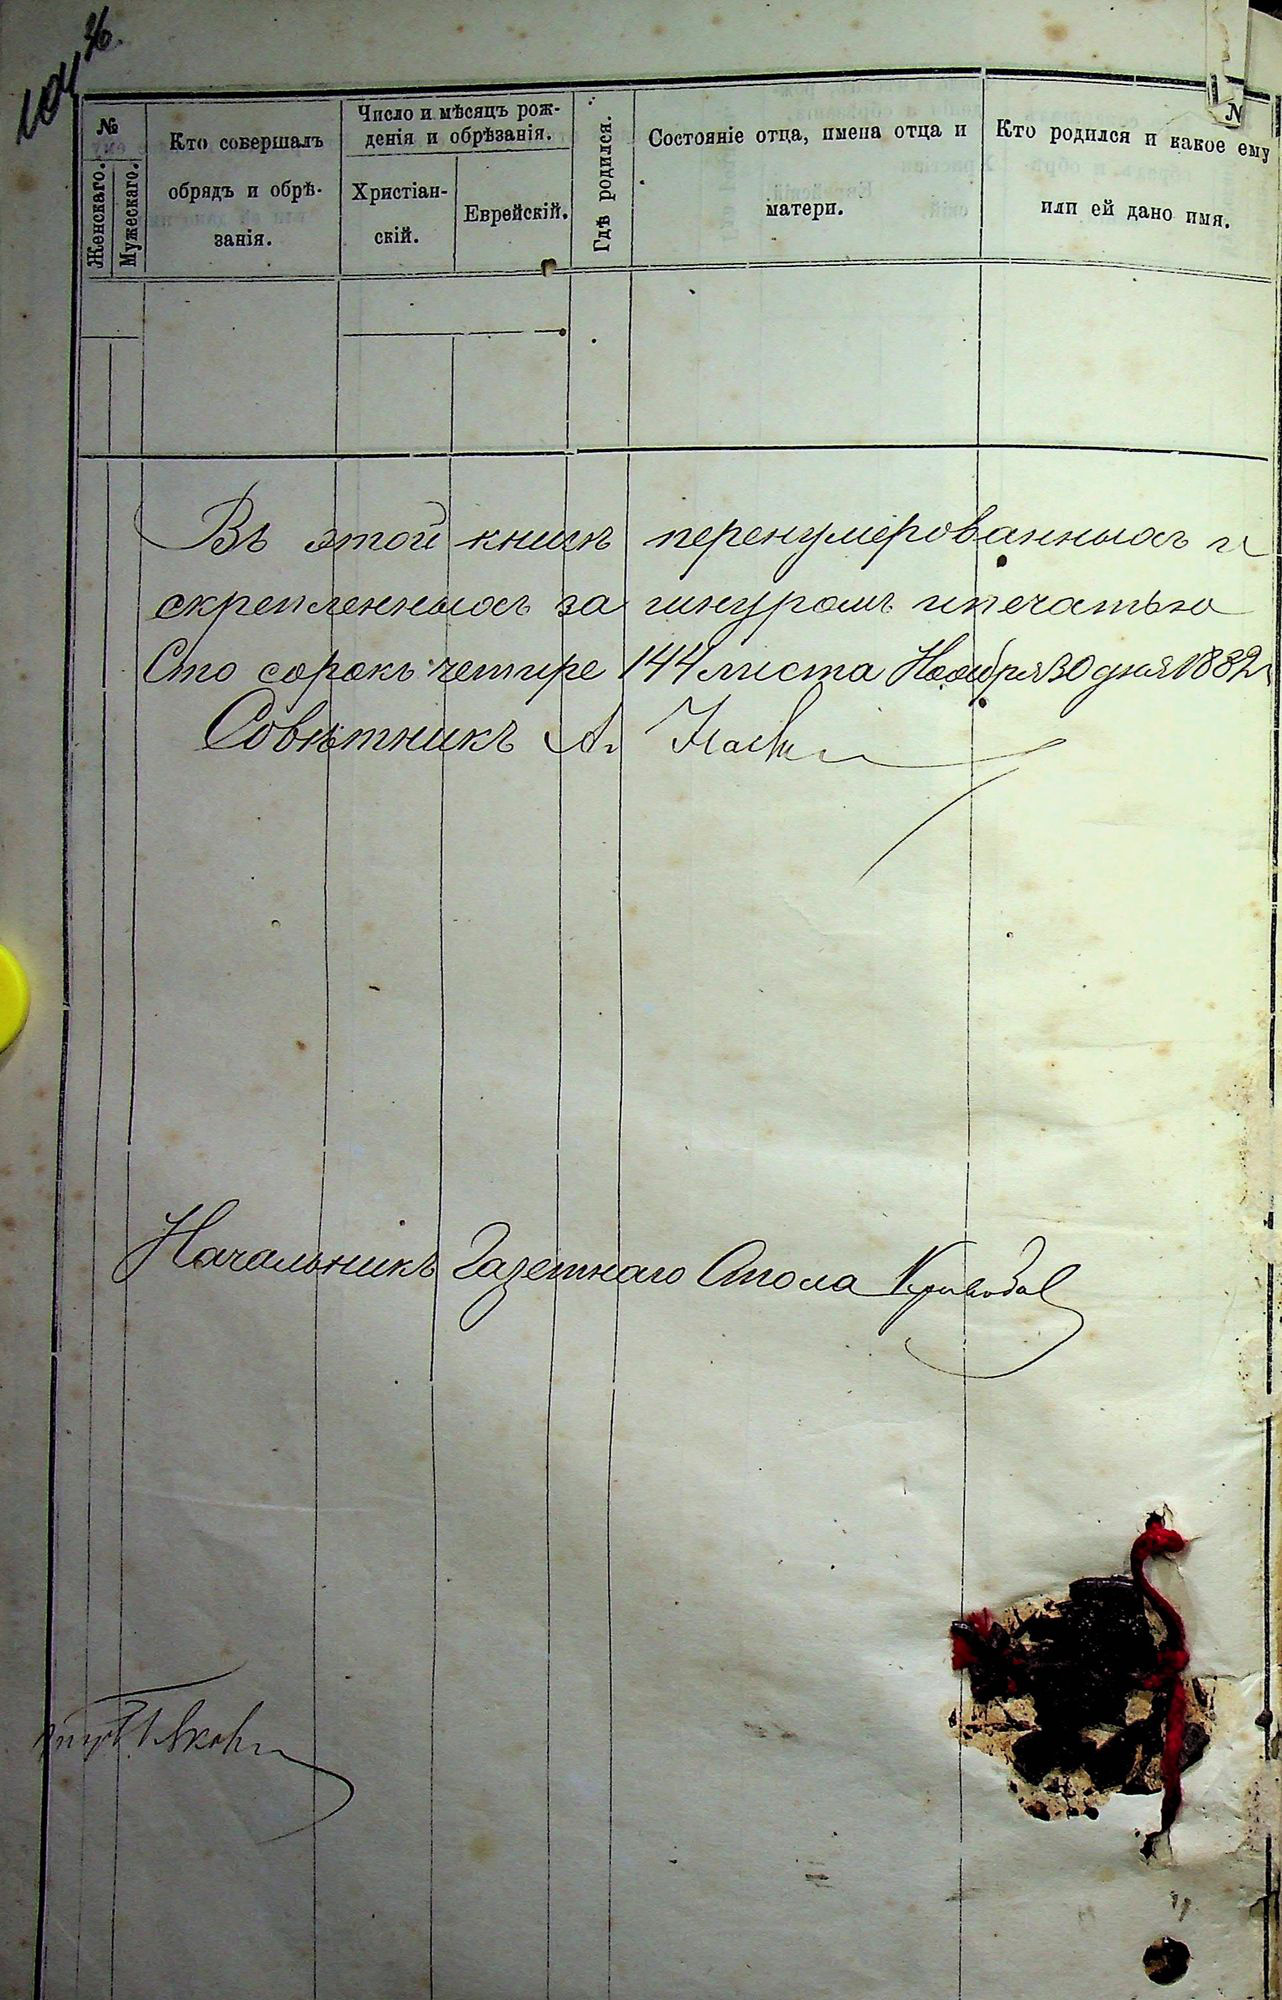 №
Женскаго.
Мужескаго.
Кто совершалъ
обрядъ и обрѣ-
занія.
Число и мѣсяцъ рож-
денія и обрѣзанія.
Христіан-
скій.
Еврейскій.
Гдѣ родился.
Состояніе отца, имена отца и
матери.
Кто родился и какое ему
или ей дано имя.
Въ этой книгѣ перенумерованныхъ и
скрепленныхъ за шнуромъ и печатью
Сто сорокъ четыре 144 листа Ноября 30 дня 1882 г
Совѣтникъ А.
Начальникъ Газетнаго Стола